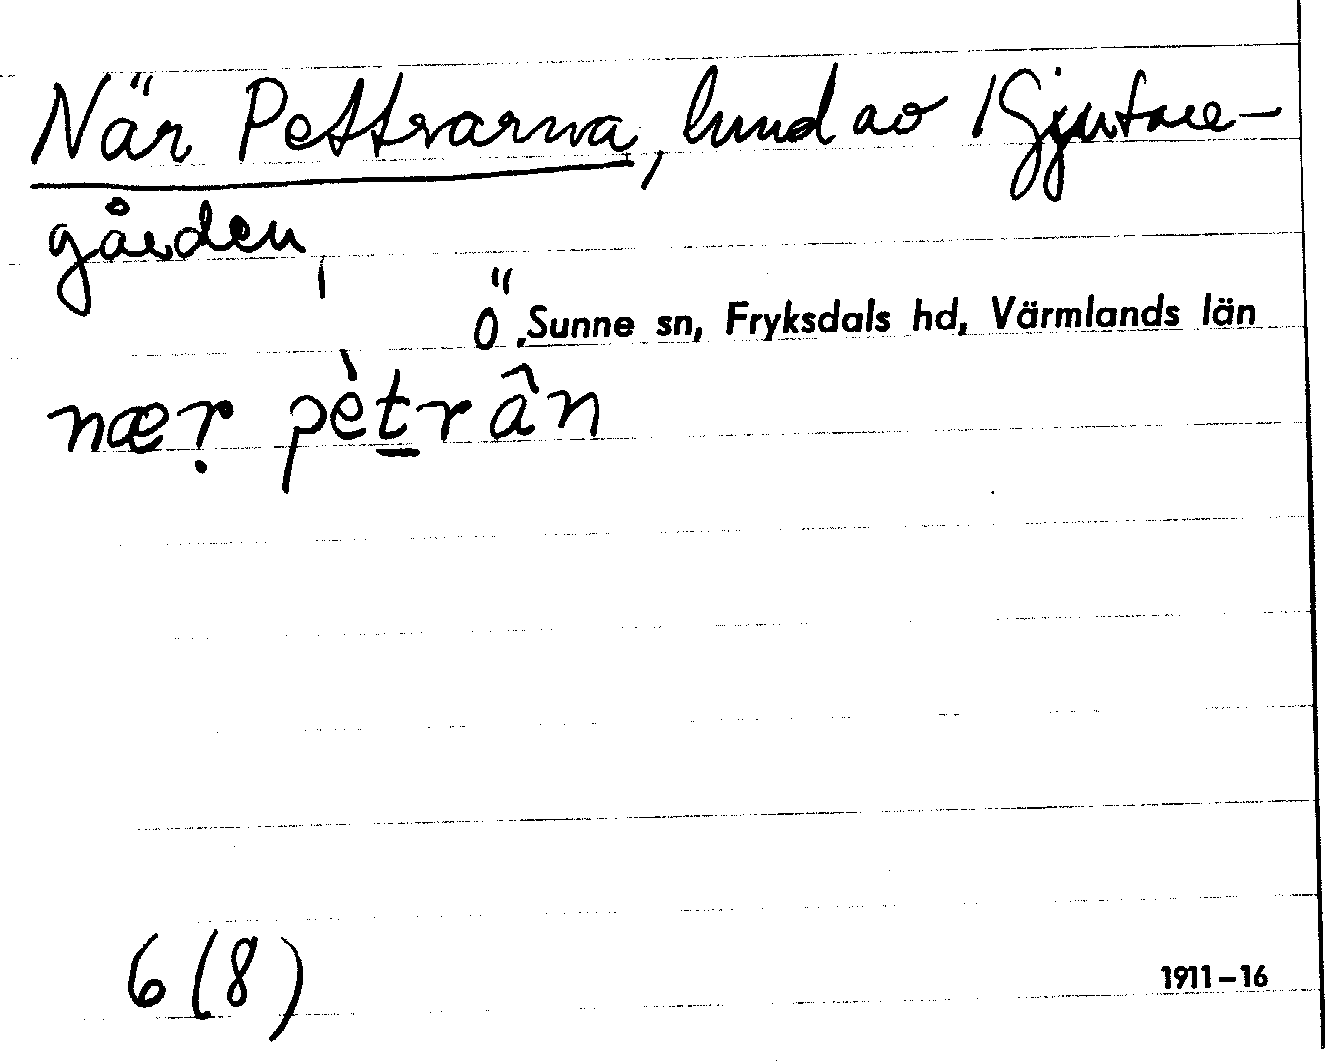 När Pettrarna, lund av 1 Gjutare-
gården,
Ö. Sunne sn, Fryksdals hd, Värmlands län
næṛ pètrân
6 (8)
1911–16